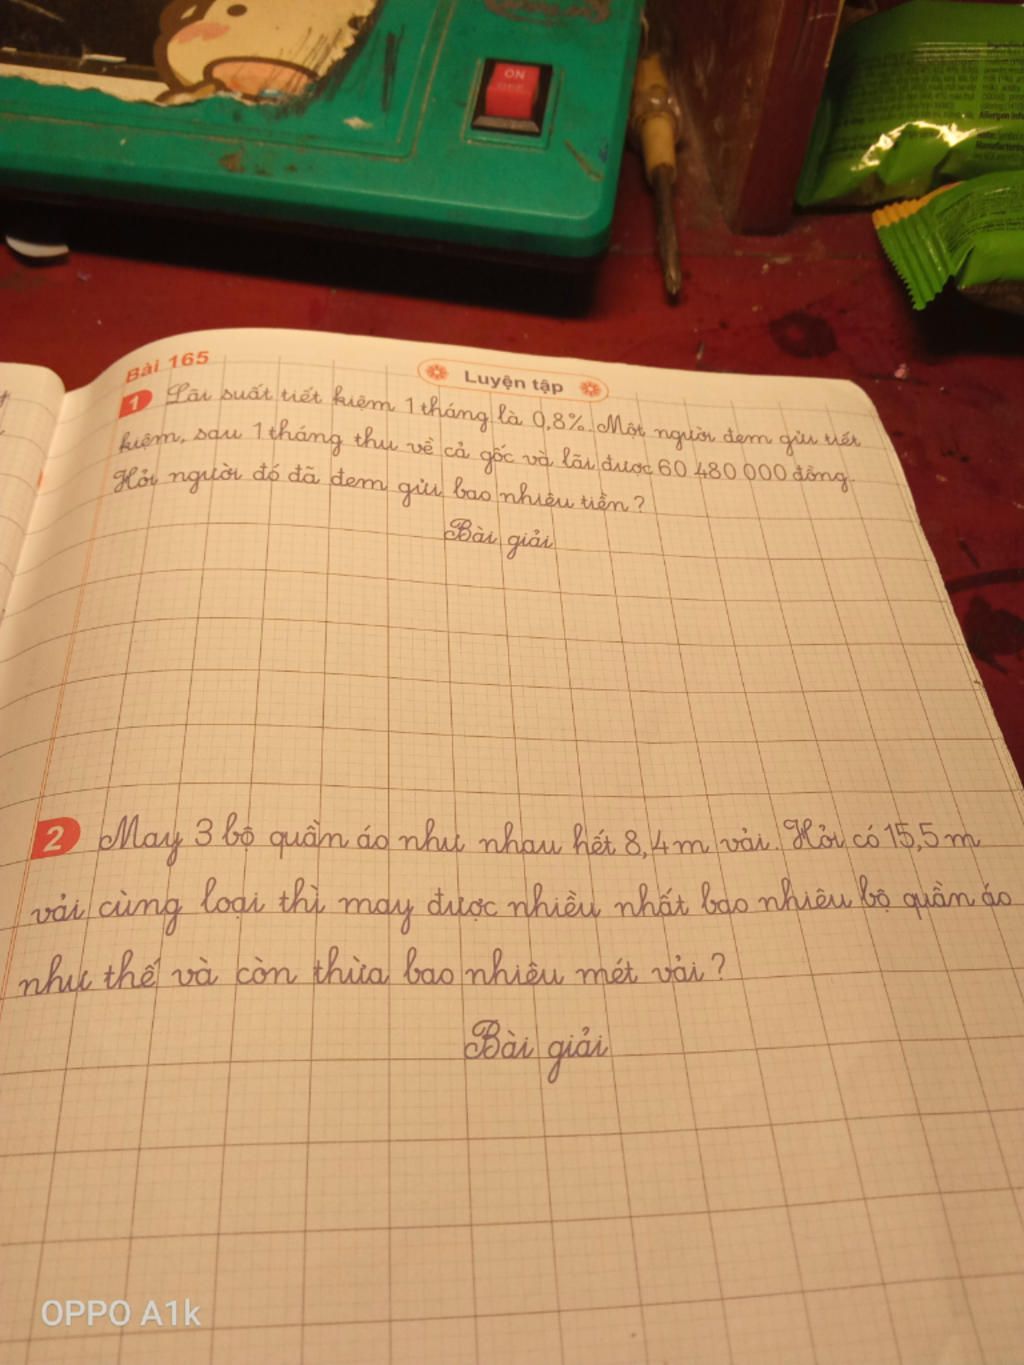 ON
Allergen
Manufacturing
Bài 165
Luyện tập
1 Lãi suất tiết kiệm 1 tháng là 0,8%. Một người đem gửi tiết
kiệm, sau 1 tháng thu về cả gốc và lãi được 60 480 000 đồng.
Hỏi người đó đã đem gửi bao nhiêu tiền?
Bài giải
2 May 3 bộ quần áo như nhau hết 8,4m vải. Hỏi có 15,5m
vải cùng loại thì may được nhiều nhất bao nhiêu bộ quần áo
như thế và còn thừa bao nhiêu mét vải?
Bài giải
OPPO A1k